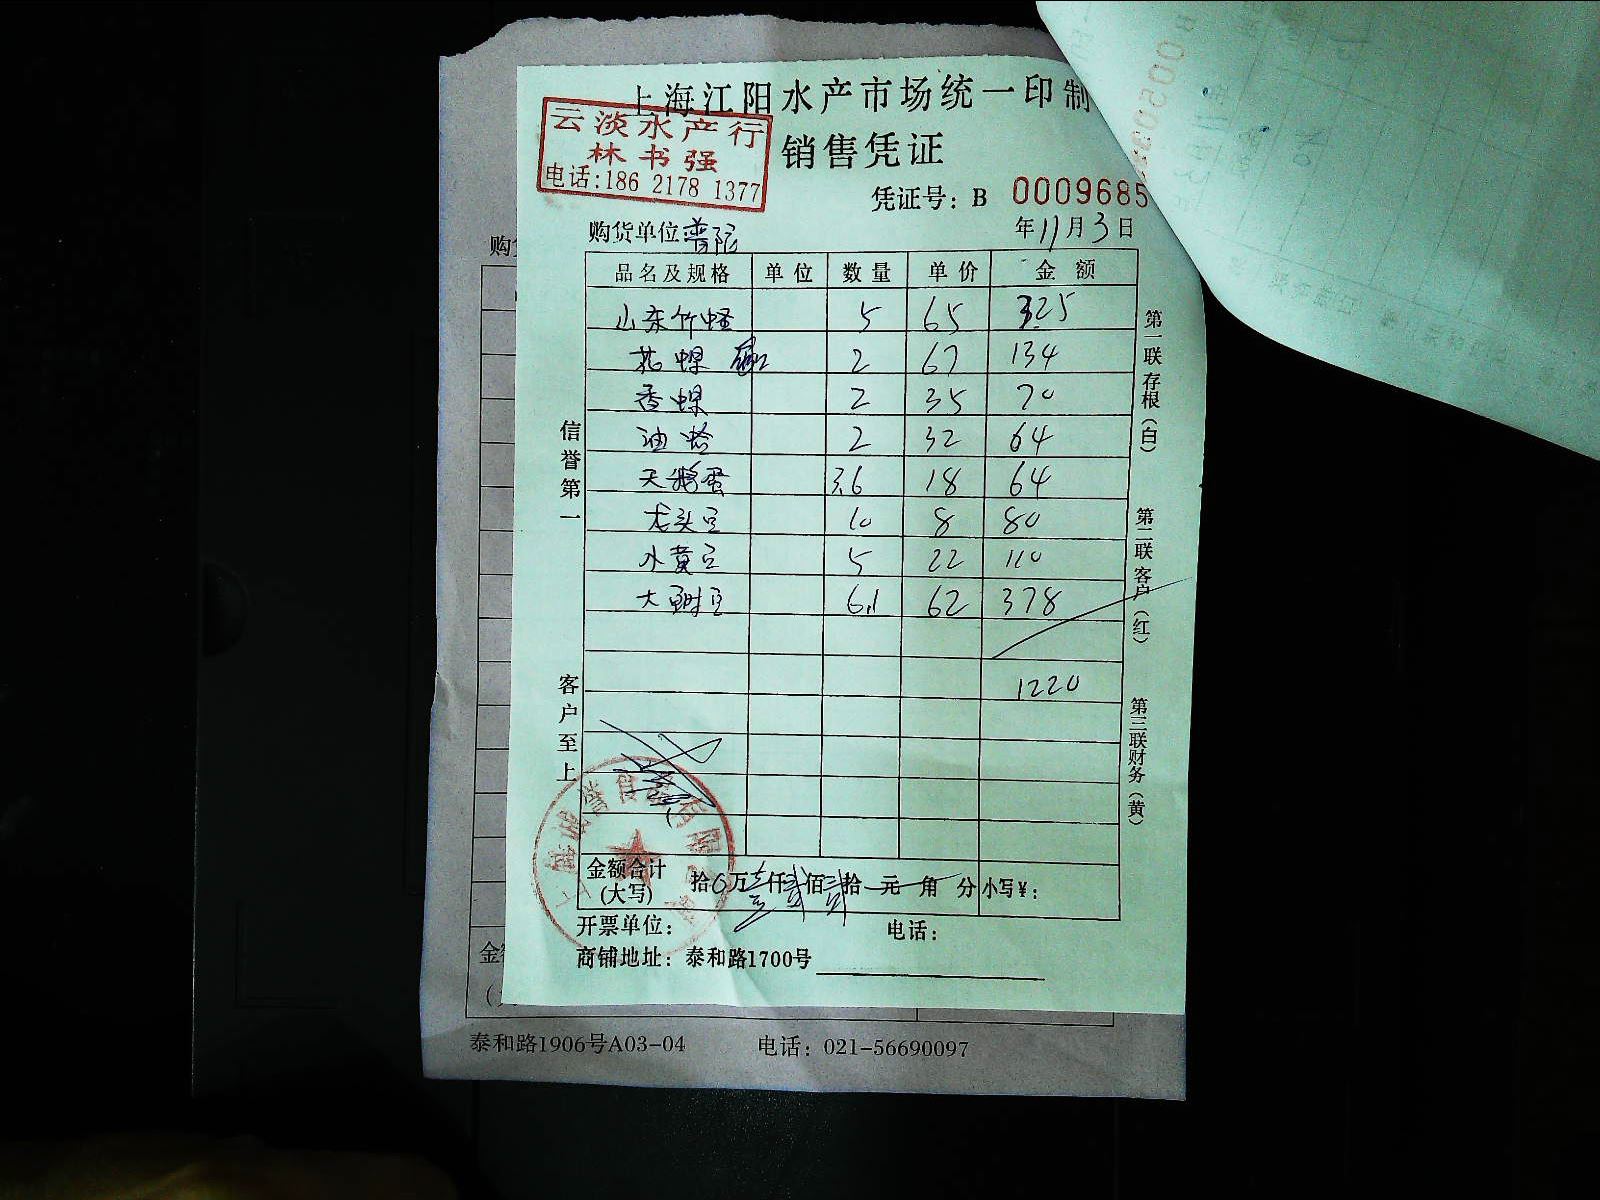 上海江阳水产市场统一印制
云淡水产行
林书强
电话:186 2178 1377
销售凭证
凭证号: B 0009685
购货单位 普陀
年11月3日
品名及规格 单位 数量 单价 金额
山东竹蛏 5 65 325
花螺 2 67 134
香螺 2 35 70
油蛤 2 32 64
天鹅蛋 3.6 18 64
龙头豆 10 8 80
小黄豆 5 22 110
大 豆 6.1 62 378
1220
信誉第一
客户至上
第一联存根(白)
第二联客户(红)
第三联财务(黄)
上海诚誉食品有限公司
金额合计(大写) 拾0万壹仟贰佰贰拾 元 角 分 小写¥:
开票单位: 电话:
商铺地址: 泰和路1700号
购
金
泰和路1906号A03-04 电话: 021-56690097